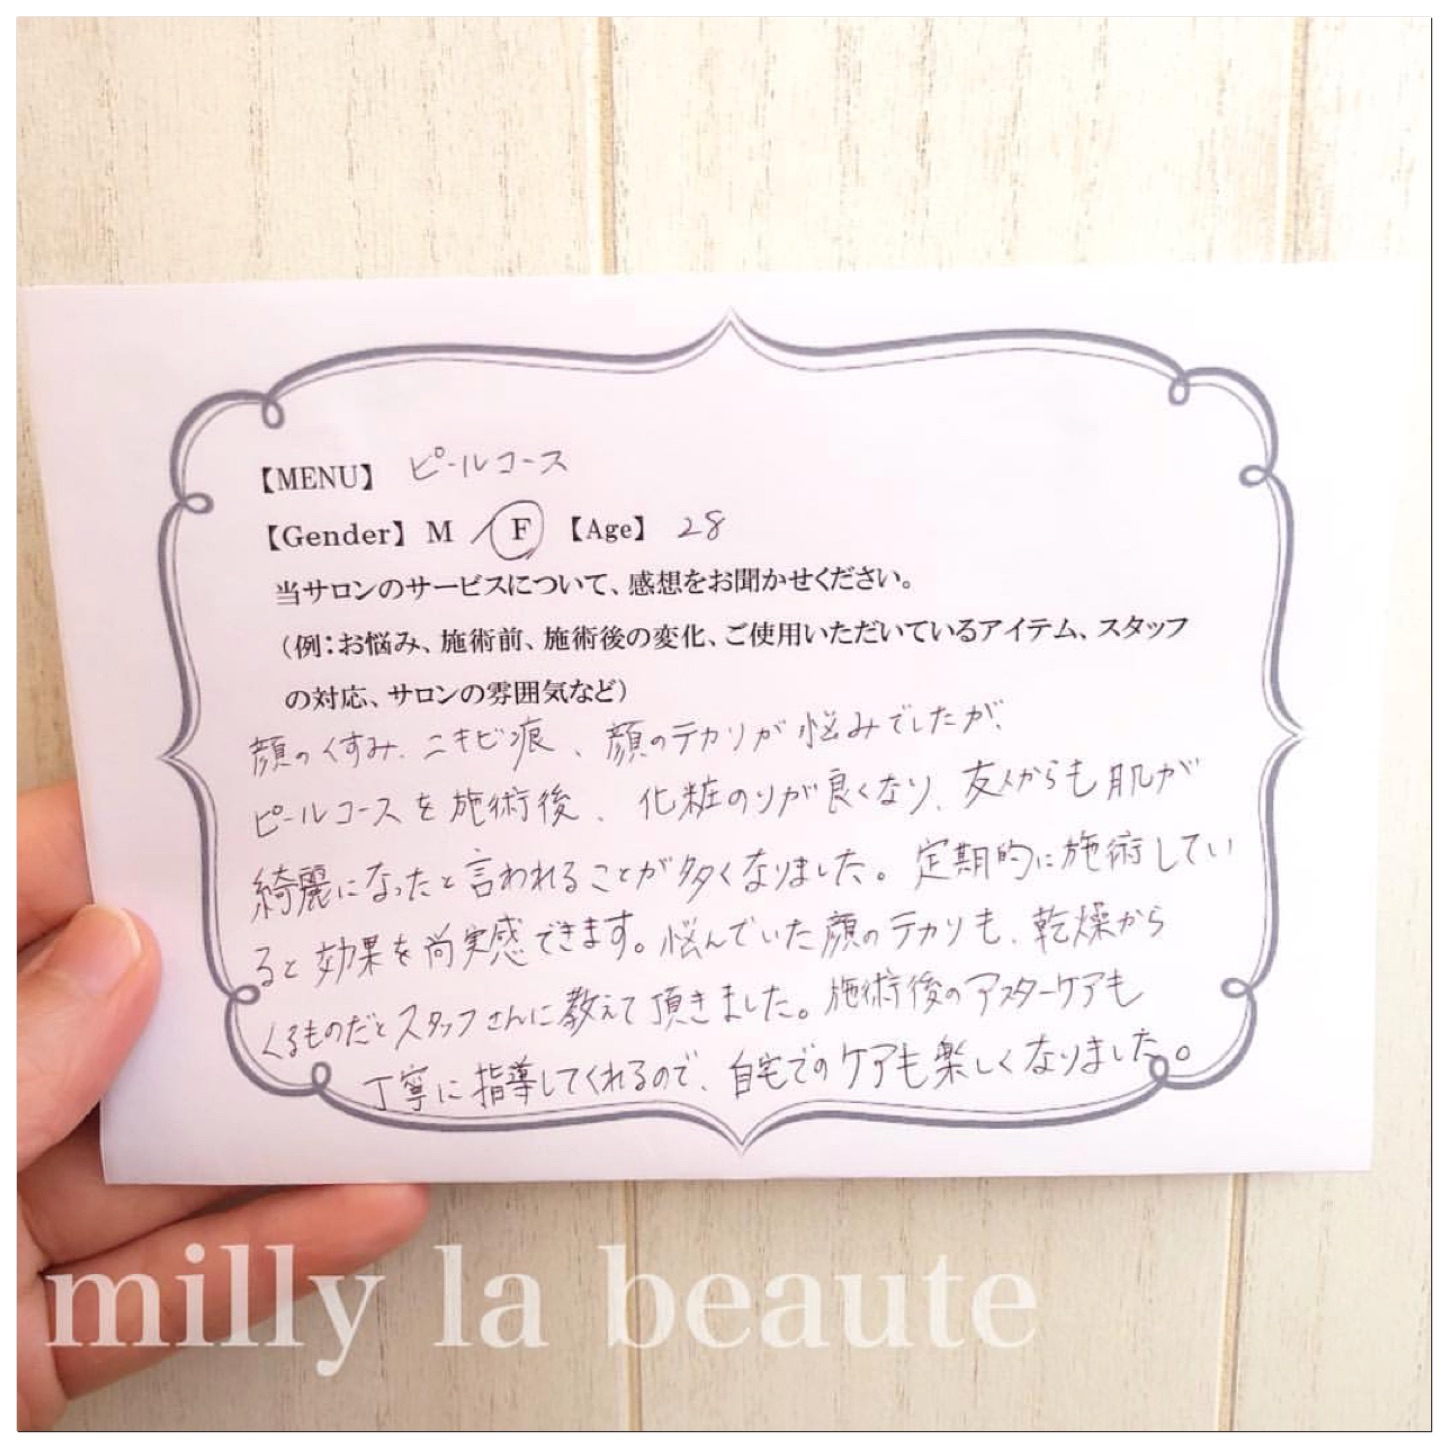 【MENU】 ピールコース
【Gender】 M / F 【Age】 28
当サロンのサービスについて、感想をお聞かせください。
（例：お悩み、施術前、施術後の変化、ご使用いただいているアイテム、スタッフ
の対応、サロンの雰囲気など）
顔のくすみ、ニキビ痕、顔のテカリが悩みでしたが、
ピールコースを施術後、化粧のりが良くなり、友人からも肌が
綺麗になったと言われることが多くなりました。定期的に施術してい
ると効果を尚実感できます。悩んでいた顔のテカリも、乾燥から
くるものだとスタッフさんに教えて頂きました。施術後のアスターケアも
丁寧に指導してくれるので、自宅でのケアも楽しくなりました。
milly la beaute